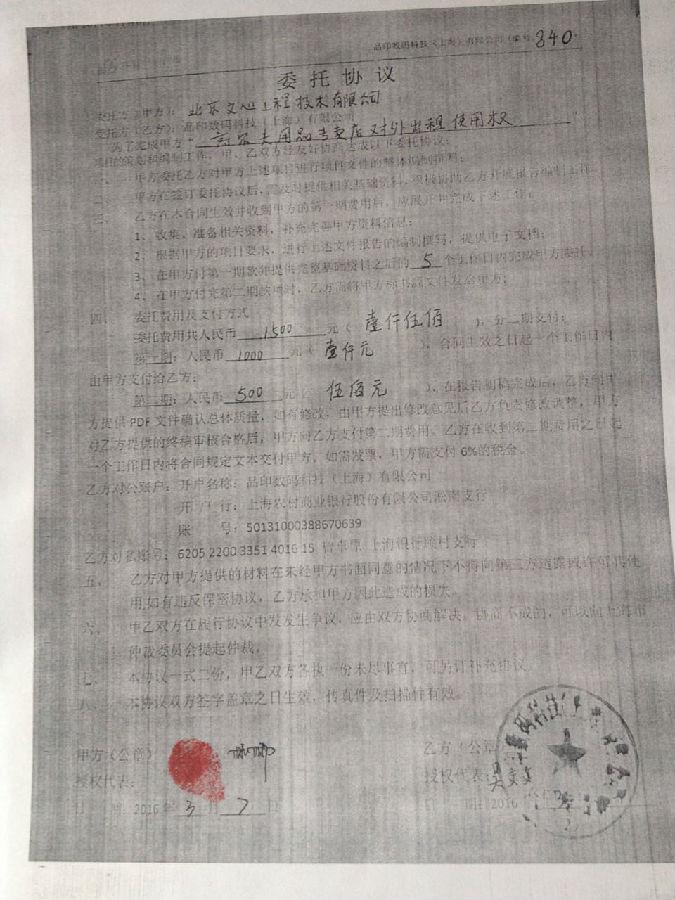 品印数码科技（上海）有限公司（编号 840
委托协议
委托方（甲方）：
委托方（乙方）：品印数码科技（上海）有限公司
为了完成甲方
项目的策划和编制工作，甲、乙双方经友好协商达成以下委托协议：
一、甲方委托乙方对甲方上述项目进行项性文件的整体编制撰写；
三、乙方在本合同生效并收到甲方的第一期费用后，应展开并完成下述工作：
1、收集、准备相关资料，补充完善甲方资料信息；
2、根据甲方的项目要求，进行上述文件报告的编制撰写，提供电子文档；
3、在甲方付第一期款并提供完整基础资料之后的 5 个工作日内完成甲方委托
四、委托费用及支付方式
委托费用共人民币 1500 元（ 壹仟伍佰 ），分二期支付：
第一期：人民币 1000 元（ 壹仟元 ），合同生效之日起一个工作日内
由甲方支付给乙方；
第二期：人民币 500 元（ 伍佰元 ），在报告初稿完成后，乙方向甲
方提供 PDF 文件确认总体质量，如有修改，由甲方提出修改意见后乙方负责修改调整，甲方
对乙方提供的终稿审核合格后，甲方向乙方支付第二期费用。乙方在收到第二期费用之日起
一个工作日内将合同规定文本交付甲方，如需发票，甲方需支付 6%的税金。
乙方对公账户：开户名称：品印数码科技（上海）有限公司
开户行：上海农村商业银行股份有限公司淞南支行
账号：50131000388670639
乙方对私账号：6205 2200 3351 4016 15
五、乙方对甲方提供的材料在未经甲方书面同意的情况下不得向第三方透露或许可其使
用,如有违反保密协议，乙方承担甲方因此造成的损失。
六、甲乙双方在履行协议中发生争议，应由双方协商解决。协商不成的，可以向上海市
仲裁委员会提起仲裁。
七、本协议一式二份，甲乙双方各执一份未尽事宜，可另订补充协议。
八、本协议双方签字盖章之日生效，传真件及扫描件有效。
甲方（公章） 乙方（公章
授权代表： 授权代表：吴文文
日 期 2016 年 3 月 7 日 日 期 2016